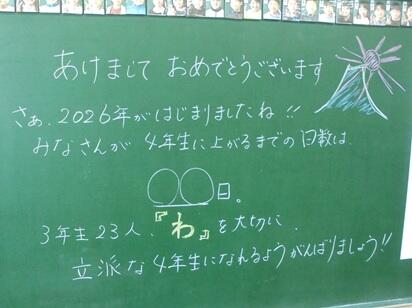 あけまして おめでとうございます
さぁ、2026年がはじまりましたね!!
みなさんが 4年生に上がるまでの日数は、
○○日。
3年生23人、『わ』を大切に、
立派な4年生になれるようがんばりましょう!!